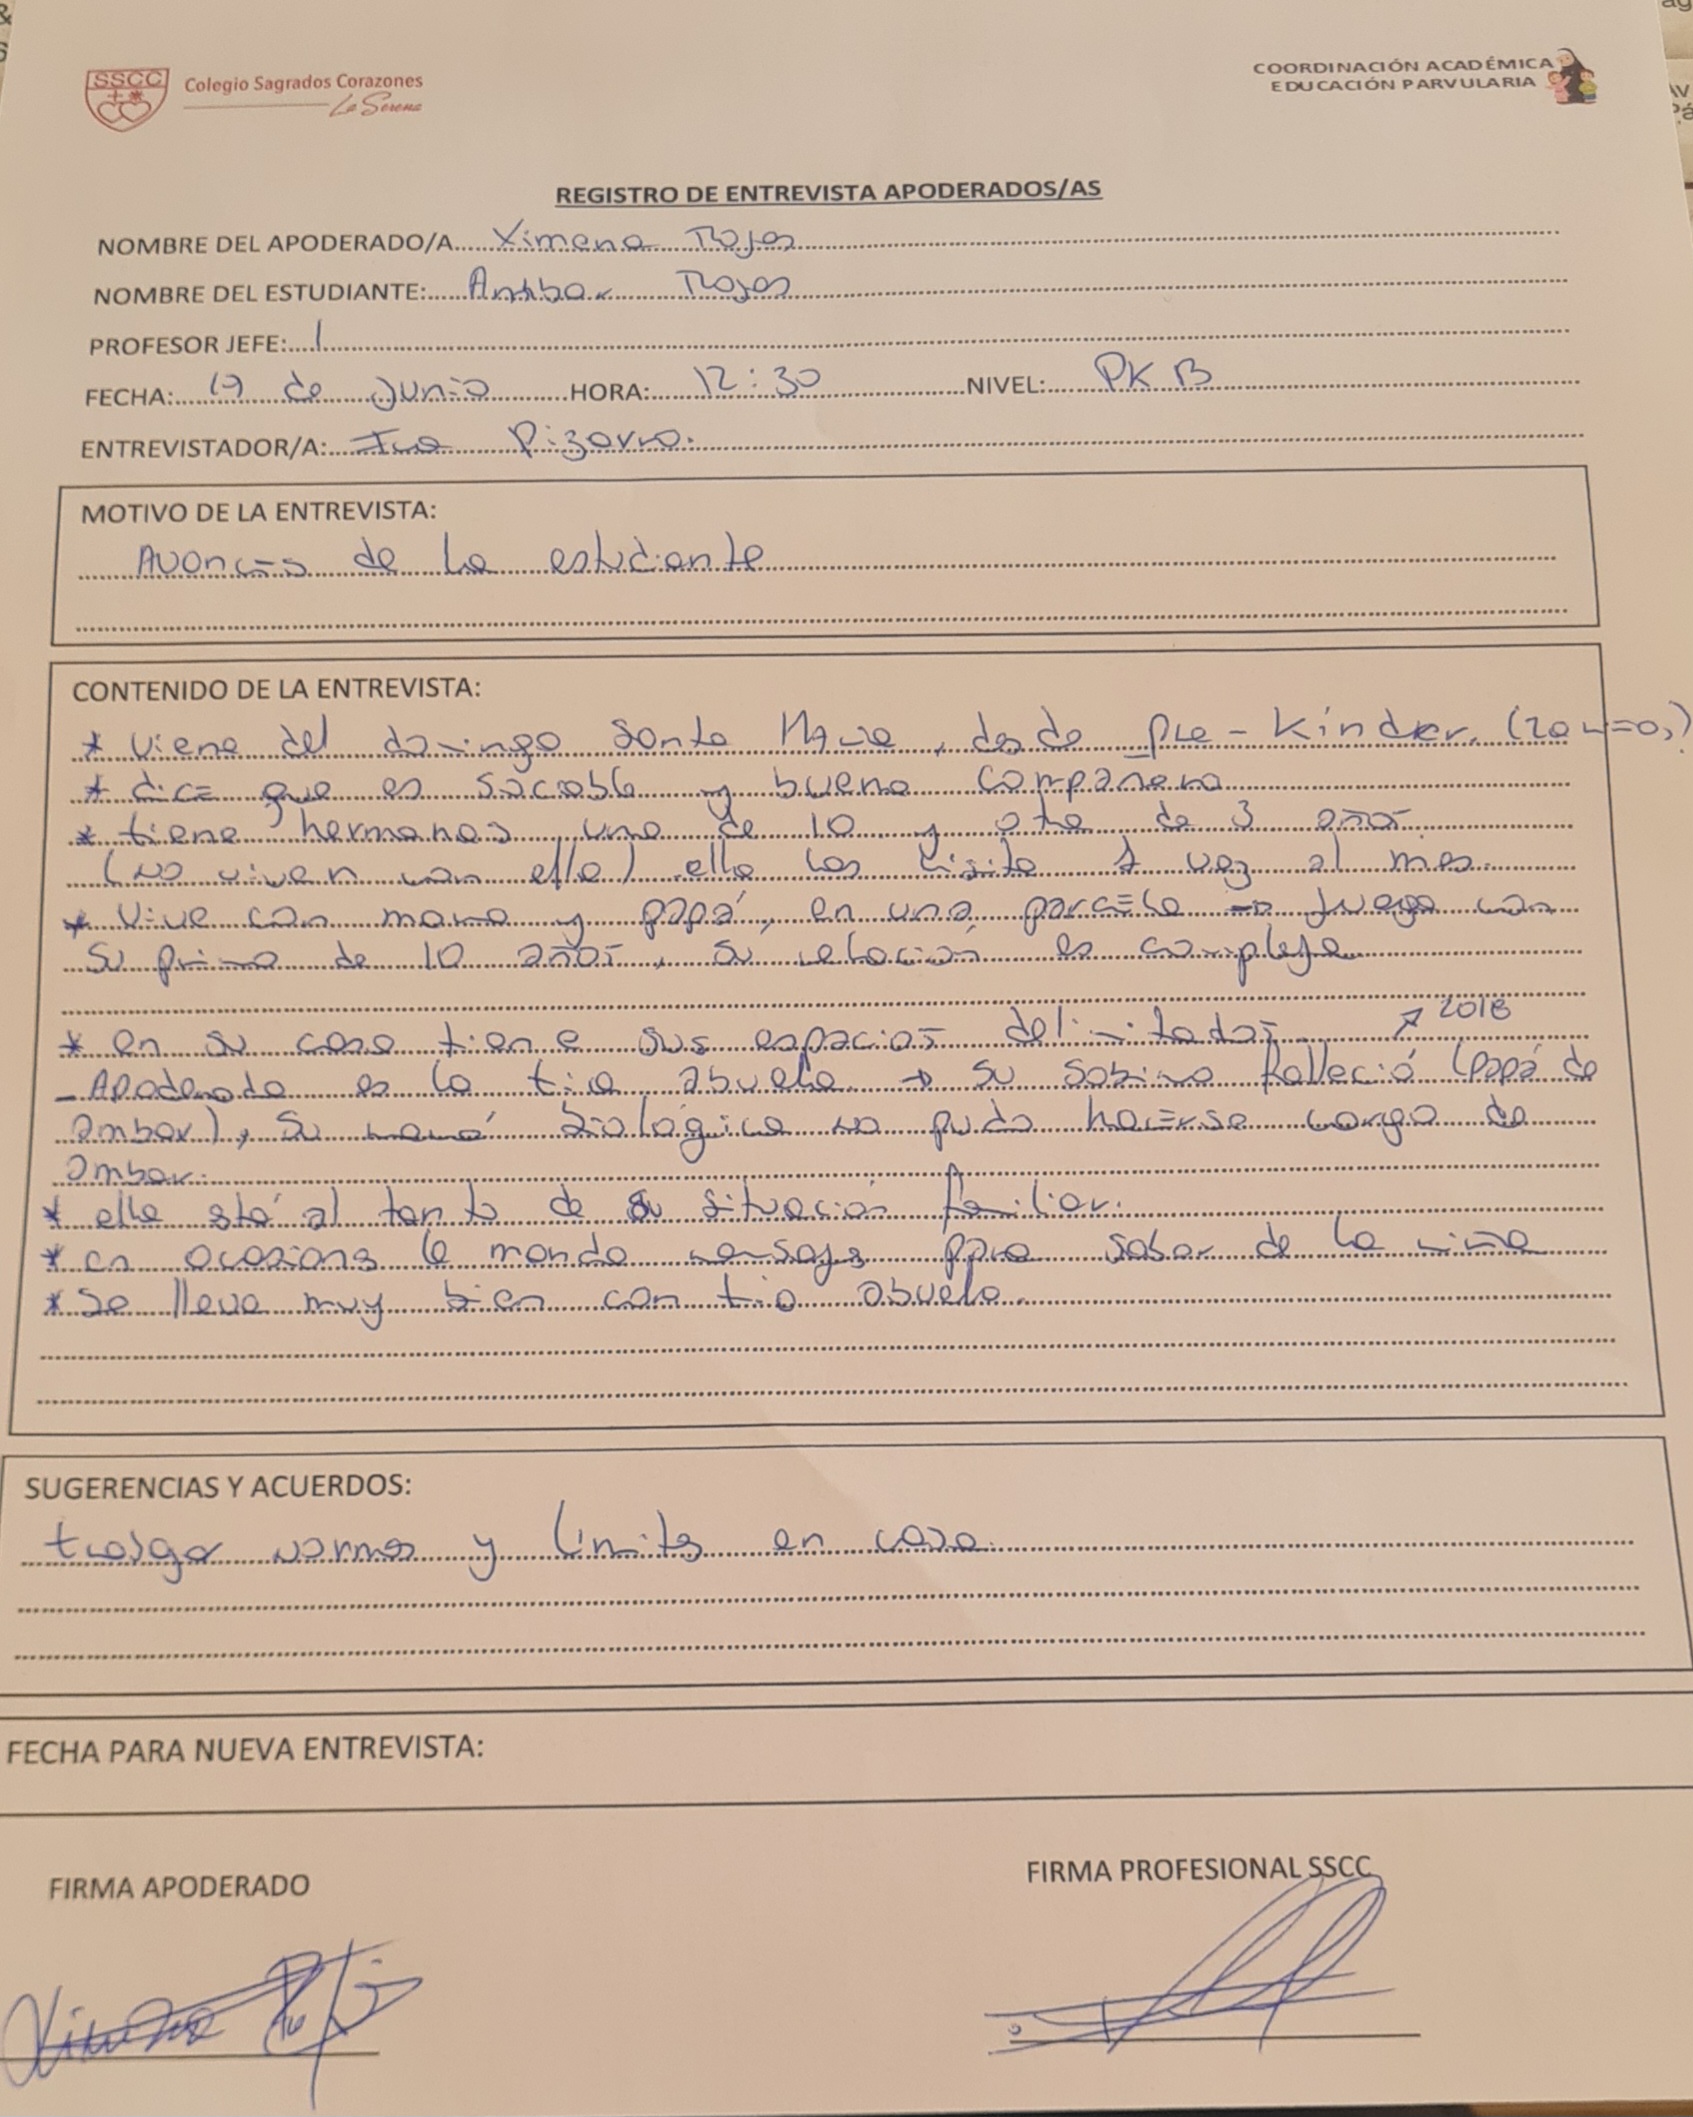 SSCC
Colegio Sagrados Corazones
La Serena
COORDINACIÓN ACADÉMICA
EDUCACIÓN PARVULARIA
REGISTRO DE ENTREVISTA APODERADOS/AS
NOMBRE DEL APODERADO/A Ximena Rojas
NOMBRE DEL ESTUDIANTE: Ambar Rojas
PROFESOR JEFE:
FECHA: 19 de Junio HORA: 12:30 NIVEL: PK B
ENTREVISTADOR/A: Pizarro.
MOTIVO DE LA ENTREVISTA:
Avances de la estudiante
CONTENIDO DE LA ENTREVISTA:
* viene del domingo Santa María, desde pre-Kinder. (20
* dice que es sociable y buena compañera
* tiene hermanas una de 10 y otra de 3 años
(no viven con ella) ella los visita 1 vez al mes.
* Vive con mama y papá, en una parcela → Juega con
su primo de 10 años, su relación es compleja
↗ 2018
* en su casa tiene sus espacios delimitados
- Apoderada es la tia abuela → su sobrino falleció (papá de
ambar), su mamá biológica no pudo hacerse cargo de
ambar.
* ella stá al tanto de su situación familiar.
* en ocasions le manda mensajs para saber de la niña
* Se lleva muy bien con tio abuelo.
SUGERENCIAS Y ACUERDOS:
normas y límits en casa.
FECHA PARA NUEVA ENTREVISTA:
FIRMA APODERADO
FIRMA PROFESIONAL SSCC